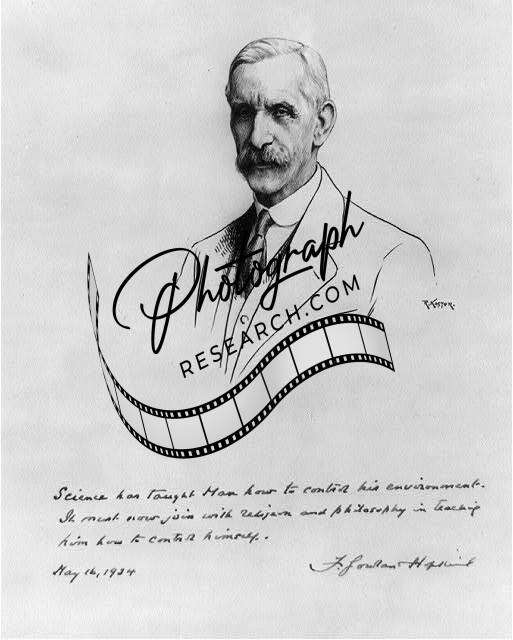 Photograph
©
RESEARCH.COM
R. KASTOR.
Science has taught Man how to control his environment.
It must now join with religion and philosophy in teaching
him how to control himself.
May 16, 1934
F. Gowland Hopkins